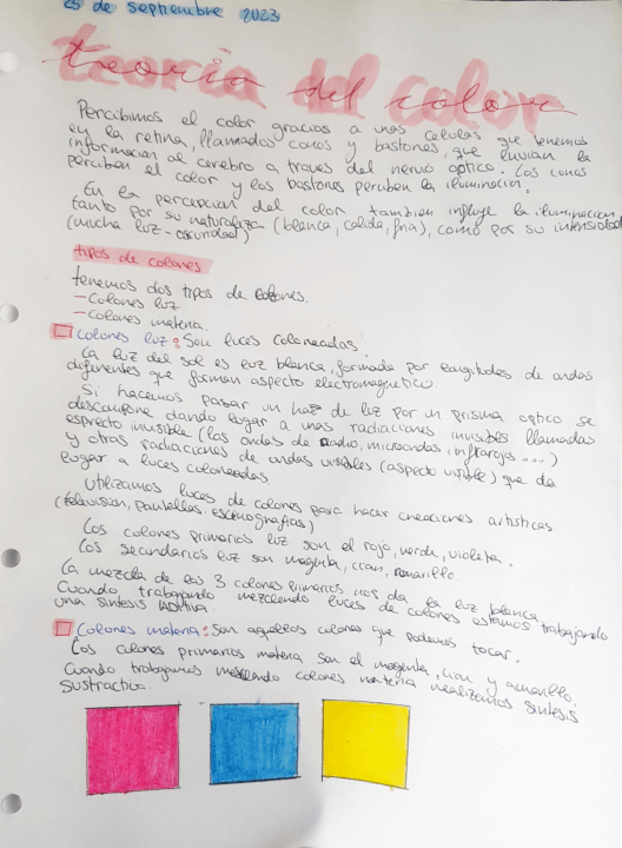 25 de septiembre 2023
teoria del color
Percibimos el color gracias a unas celulas que tenemos
en la retina, llamados conos y bastones, que envian la
informacion al cerebro a traves del nervio optico. Los conos
perciben el color y los bastones perciben la iluminacion.
En la percepcion del color tambien influye la iluminacion
tanto por su naturaleza (blanca, calida, fria), como por su intensidad
(mucha luz-oscuridad)
tipos de colores
tenemos dos tipos de colores.
-Colores luz
-Colores materia.
Colores luz: Son luces coloreadas.
La luz del sol es luz blanca, formada por longitudes de ondas
diferentes que forman aspecto electromagnetico.
Si hacemos pasar un haz de luz por un prisma optico se
descompone dando lugar a unas radiaciones invisibles llamadas
esprecto invisible (las ondas de radio, microondas, infrarojos ...)
y otras radiaciones de ondas visibles (aspecto visible) que da
lugar a luces coloreadas.
Utilizamos luces de colores para hacer creaciones artisticas
(television, pantallas, escenografias)
Los colores primarios luz son el rojo, verde, violeta.
Los secundarios luz son magenta, cian, amarillo.
La mezcla de los 3 colores primarios nos da la luz blanca.
Cuando trabajando mezclendo luces de colores estamos trabajando
una sintesis ADitiva.
Colores materia: Son aquellos colores que podemos tocar.
Los colores primarios materia son el magenta, cian y amarillo.
Cuando trabajamos mezclando colores materia realizamos sintesis
sustractiva.